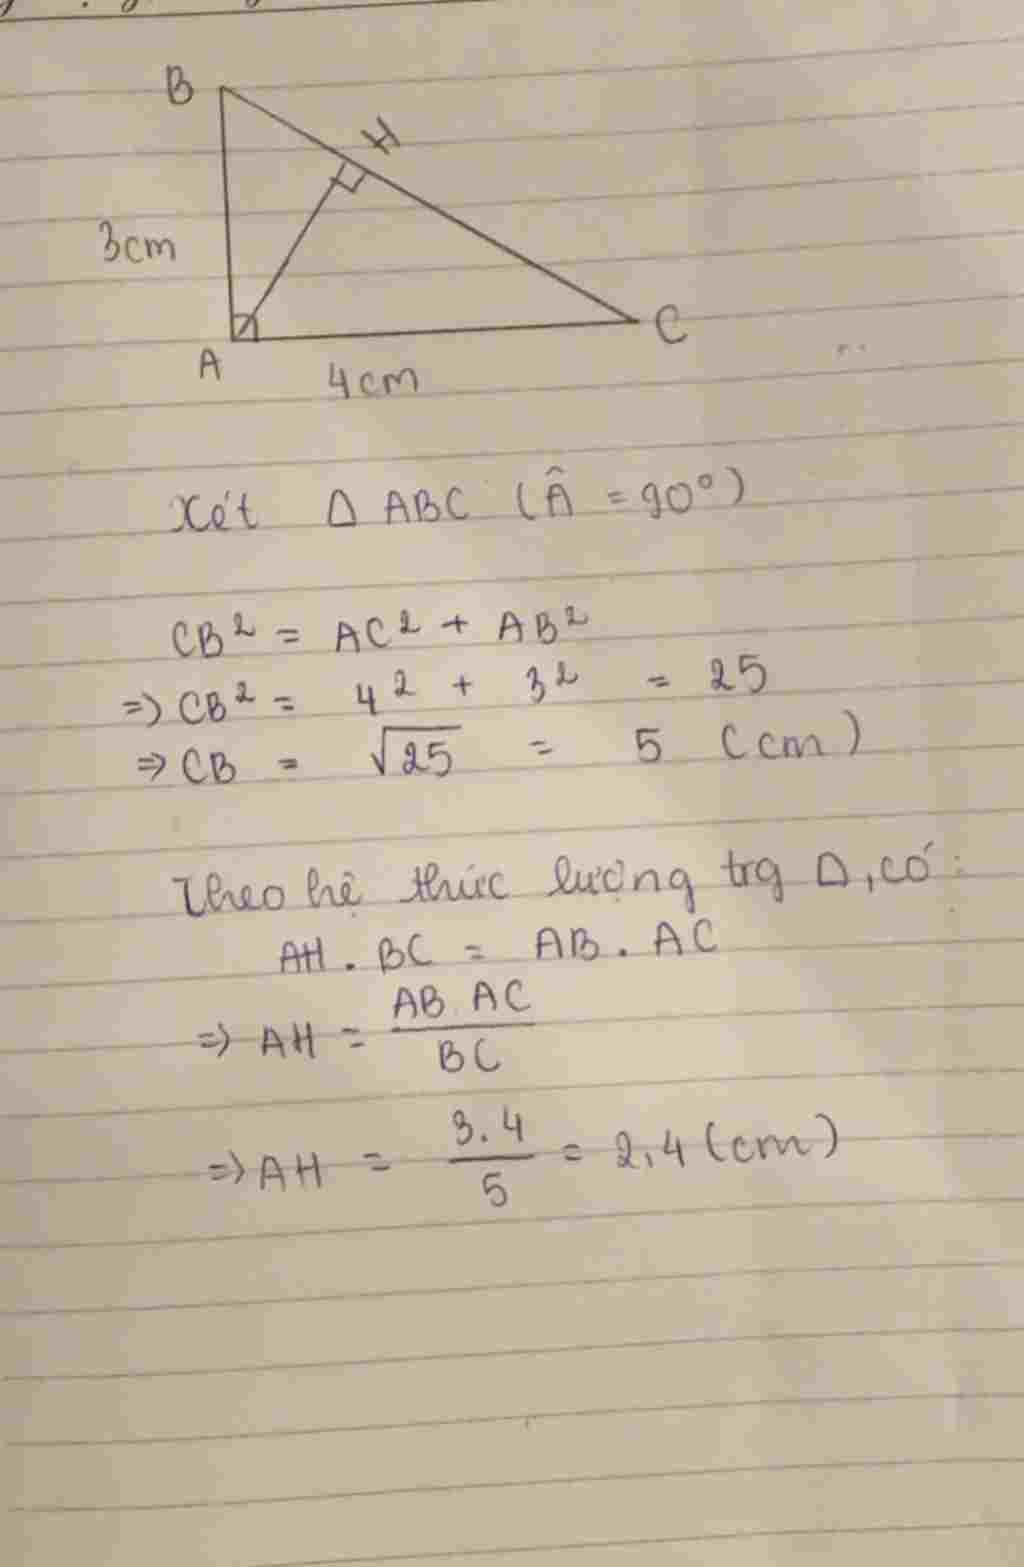 B
H
3cm
A
C
4cm
Xét Δ ABC (Â = 90°)
CB² = AC² + AB²
=> CB² = 4² + 3² = 25
=> CB = √25 = 5 (cm)
Theo hệ thức lượng trg Δ, có:
AH . BC = AB . AC
=> AH = AB AC / BC
=> AH = 3.4 / 5 = 2,4 (cm)